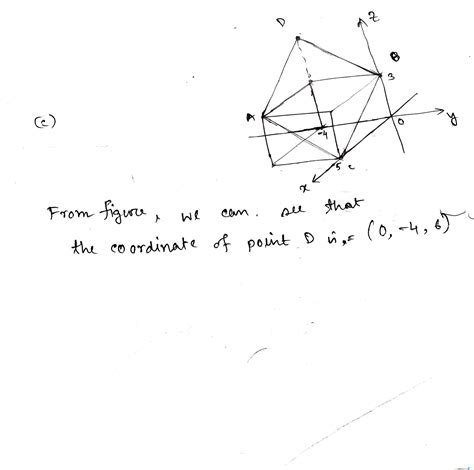 D
z
B
3
(c)
A
-4
0
y
5
c
x
From figure, we can. see that
the coordinate of point D is,= (0, -4, 6)